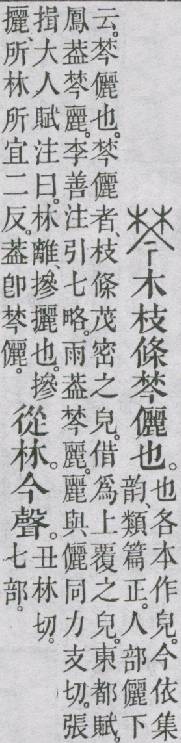 棽木枝條棽儷也。也各本作皃。今依集
韵、類篇正。人部儷下
云。棽儷也。棽儷者、枝條茂密之皃。借爲上覆之皃。東都賦。
鳳葢棽麗。李善注引七略。雨葢棽麗。麗與儷同。力支切。張
揖大人賦注曰。林離、摻攡也。摻
攡、所林所宜二反。葢卽棽儷。
從林。今聲。丑林切。
七部。